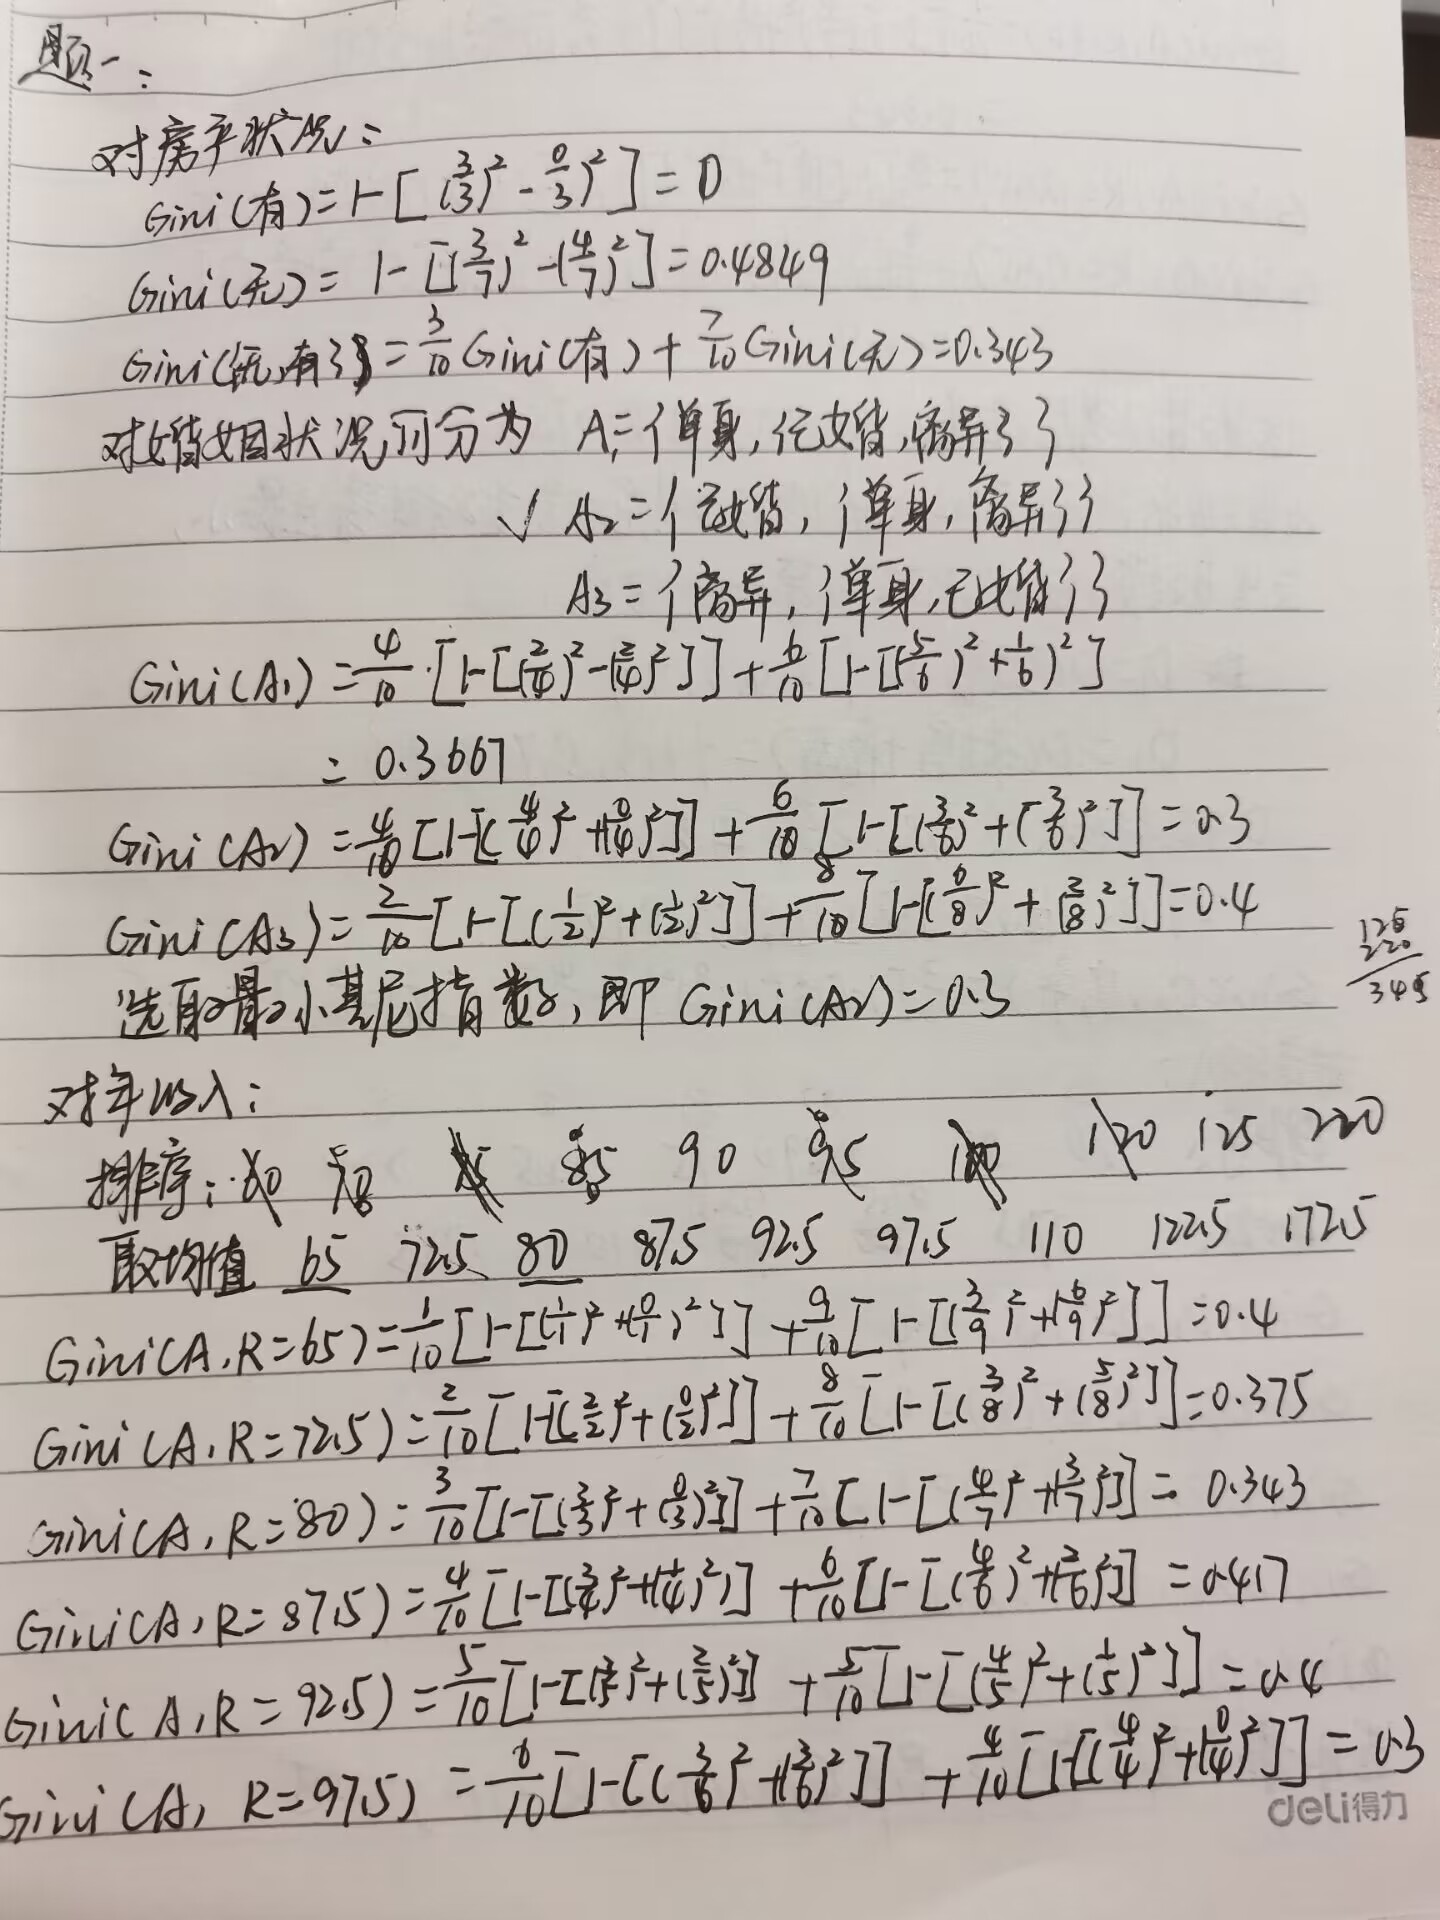 题一:
对房产状况:
Gini(有)=1-[(3/3)²-(0/3)²]=0
Gini(无)=1-[(3/7)²-(4/7)²]=0.4849
Gini({无,有})=3/10Gini(有)+7/10Gini(无)=0.343
对婚姻状况可分为 A₁={单身,{已婚,离异}}
√ A₂={已婚,{单身,离异}}
A₃={离异,{单身,已婚}}
Gini(A₁)=4/10·[1-[(2/4)²-(2/4)²]]+6/10[1-[(5/6)²+(1/6)²]
=0.3667
Gini(A₂)=4/10[1-[(4/4)²+(0/4)²]]+6/10[1-[(3/6)²+(3/6)²]]=0.3
Gini(A₃)=2/10[1-[(1/2)²+(1/2)²]]+8/10[1-[(6/8)²+(2/8)²]]=0.4
选取最小基尼指数,即 Gini(A₂)=0.3
125
220
345
对年收入:
排序: 60 70 75 85 90 95 100 120 125 220
取均值 65 72.5 80 87.5 92.5 97.5 110 122.5 172.5
Gini(A,R=65)=1/10[1-[(1/1)²+(0/1)²]]+9/10[1-[(3/9)²+(6/9)²]]=0.4
Gini(A,R=72.5)=2/10[1-[(2/2)²+(0/2)²]]+8/10[1-[(3/8)²+(5/8)²]]=0.375
Gini(A,R=80)=3/10[1-[(3/3)²+(0/3)²]]+7/10[1-[(4/7)²+(3/7)²]]=0.343
Gini(A,R=87.5)=4/10[1-[(3/4)²+(1/4)²)]+6/10[1-[(4/6)²+(2/6)²]]=0.417
Gini(A,R=92.5)=5/10[1-[(3/5)²+(2/5)²]]+5/10[1-[(4/5)²+(1/5)²]]=0.4
Gini(A,R=97.5)=6/10[1-[(3/6)²+(3/6)²]]+4/10[1-[(4/4)²+(0/4)²]]=0.3
deli得力